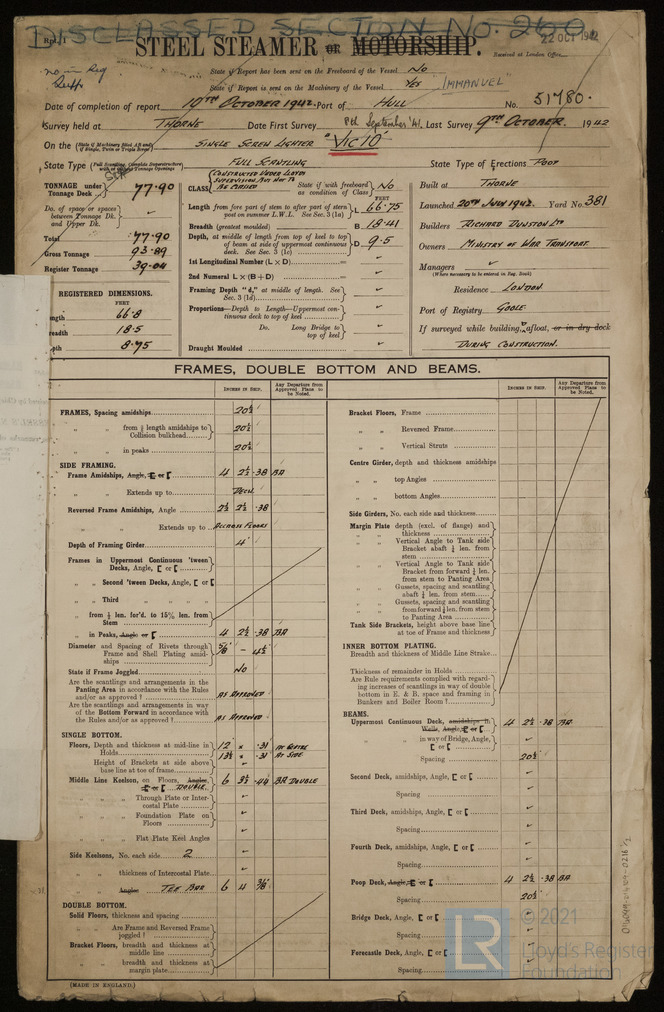 DISCLASSED SECTION No. 260
Rpt. 1
STEEL STEAMER OR MOTORSHIP.
22 OCT 1942
Received at London Office
State if Report has been sent on the Freeboard of the Vessel No
State if Report is sent on the Machinery of the Vessel Yes
"IMMANUEL"
Date of completion of report 19TH OCTOBER 1942. Port of HULL No. 51780.
Survey held at THORNE Date First Survey September '41. Last Survey 9TH OCTOBER. 1942
On the (State if Machinery fitted Aft and if Single, Twin or Triple Screw) SINGLE SCREW LIGHTER "VIC 10"
State Type (Full Scantling, Complete Superstructure with or without Tonnage Openings) FULL SCANTLING State Type of Erections POOP
TONNAGE under Tonnage Deck 77.90
Do. of space or spaces between Tonnage Dk. and Upper Dk.
Total 77.90
Gross Tonnage 93.89
Register Tonnage 39.04
REGISTERED DIMENSIONS.
FEET
ength 66.8
readth 18.5
pth 8.75
CONSTRUCTED UNDER LLOYDS
SUPERVISION, BUT NOT TO
BE CLASSED
CLASS State if with freeboard as condition of Class No
FEET
Length from fore part of stem to after part of stern post on summer L.W.L. See Sec. 3 (1a) L 66.75
Breadth (greatest moulded) B 18.41
Depth, at middle of length from top of keel to top of beam at side of uppermost continuous deck. See Sec. 3 (1c) D 9.5
1st Longitudinal Number (L × D)
2nd Numeral L × (B + D)
Framing Depth "d," at middle of length. See Sec. 3 (1d)
Proportions—Depth to Length—Uppermost continuous deck to top of keel
Do. Long Bridge to top of keel
Draught Moulded
Built at THORNE
Launched 20TH JULY 1942. Yard No. 381
Builders RICHARD DUNSTON LTD
Owners MINISTRY OF WAR TRANSPORT
Managers
(Where necessary to be entered in Reg. Book)
Residence LONDON
Port of Registry GOOLE
If surveyed while building, afloat, or in dry dock
DURING CONSTRUCTION.
FRAMES, DOUBLE BOTTOM AND BEAMS.
INCHES IN SHIP. Any Departure from Approved Plans to be Noted.
FRAMES, Spacing amidships 20½
" " from ⅗ length amidships to Collision bulkhead 20½
" " in peaks 20½
SIDE FRAMING.
Frame Amidships, Angle, [ or [ 4 2½ .38 BA
" " Extends up to DECK
Reversed Frame Amidships, Angle 2½ 2½ .38
" " Extends up to ACCROSS FLOORS
Depth of Framing Girder 4"
Frames in Uppermost Continuous 'tween Decks, Angle, [ or [
" Second 'tween Decks, Angle, [ or [
" Third " " "
" from ⅗ len. for'd. to 15% len. from Stem
" in Peaks, Angle or [ 4 2½ .38 BA
Diameter and Spacing of Rivets through Frame and Shell Plating amidships
State if Frame Joggled No
Are the scantlings and arrangements in the Panting Area in accordance with the Rules and/or as approved? AS APPROVED
Are the scantlings and arrangements in way of the Bottom Forward in accordance with the Rules and/or as approved? AS APPROVED
SINGLE BOTTOM.
Floors, Depth and thickness at mid-line in Holds 12 × .31 AT CENTRE
13½ × .31 AT SIDE
Height of Brackets at side above base line at toe of frame
Middle Line Keelson, on Floors, Angles, [ or [ DOUBLE 6 3½ .44 BA DOUBLE
" " Through Plate or Intercostal Plate
" " Foundation Plate on Floors
" " Flat Plate Keel Angles
Side Keelsons, No. each side 2
" " thickness of Intercostal Plate
" " Angles TEE BAR 6 4 3/8
DOUBLE BOTTOM.
Solid Floors, thickness and spacing
" " Are Frame and Reversed Frame joggled?
Bracket Floors, breadth and thickness at middle line
" " breadth and thickness at margin plate
(MADE IN ENGLAND.)
INCHES IN SHIP. Any Departure from Approved Plans to be Noted.
Bracket Floors, Frame
" " Reversed Frame
" " Vertical Struts
Centre Girder, depth and thickness amidships
" " top Angles
" " bottom Angles
Side Girders, No. each side and thickness
Margin Plate depth (excl. of flange) and thickness
" " Vertical Angle to Tank side Bracket abaft ¼ len. from stem
" " Vertical Angle to Tank side Bracket from forward ¼ len. from stem to Panting Area
" " Gussets, spacing and scantling abaft ¼ len. from stem
" " Gussets, spacing and scantling from forward ¼ len. from stem to Panting Area
Tank Side Brackets, height above base line at toe of Frame and thickness
INNER BOTTOM PLATING.
Breadth and thickness of Middle Line Strake
Thickness of remainder in Holds
Are Rule requirements complied with regarding increases of scantlings in way of double bottom in E. & B. space and framing in Bunkers and Boiler Room?
BEAMS.
Uppermost Continuous Deck, amidships in Wells, Angle, [ or [ 4 2½ .38 BA
" " in way of Bridge, Angle, [ or [
Spacing 20½
Second Deck, amidships, Angle, [ or [
Spacing
Third Deck, amidships, Angle, [ or [
Spacing
Fourth Deck, amidships, Angle, [ or [
Spacing
Poop Deck, Angle, [ or [ 4 2½ .38 BA
Spacing 20½
Bridge Deck, Angle, [ or [
Spacing
Forecastle Deck, Angle, [ or [
Spacing
© 2021
LR
Lloyd's Register
Foundation